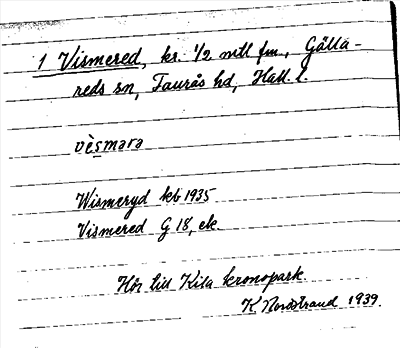 1 Vismered, kr. 1/2 mtl fm., Gälla-
reds sn, Faurås hd, Hall. l.
vèsmara
Wismeryd kb 1935
Vismered G 18, ek.
Hör till Kila kronopark.
K Nordstrand 1939.